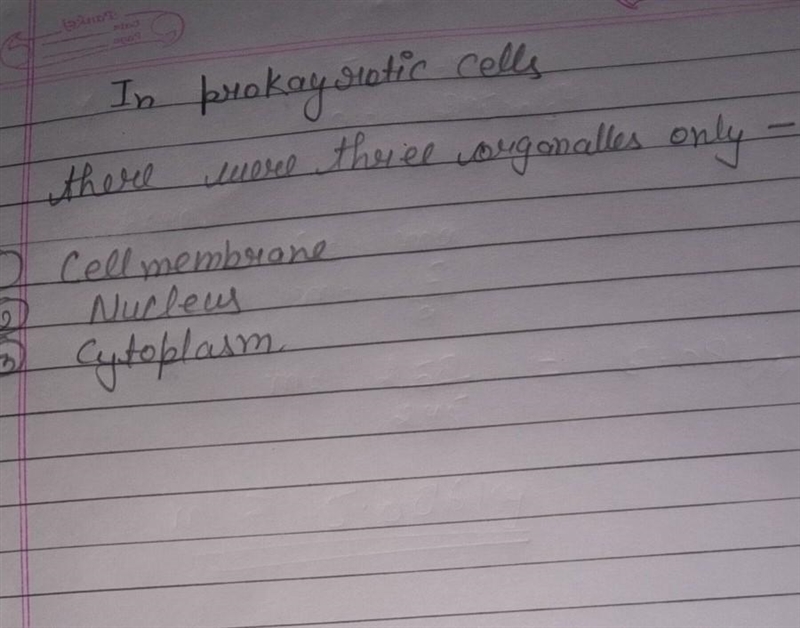 In prokayrotic cells
there were three organalles only -
① Cell membrane
② Nucleus
③ Cytoplasm.